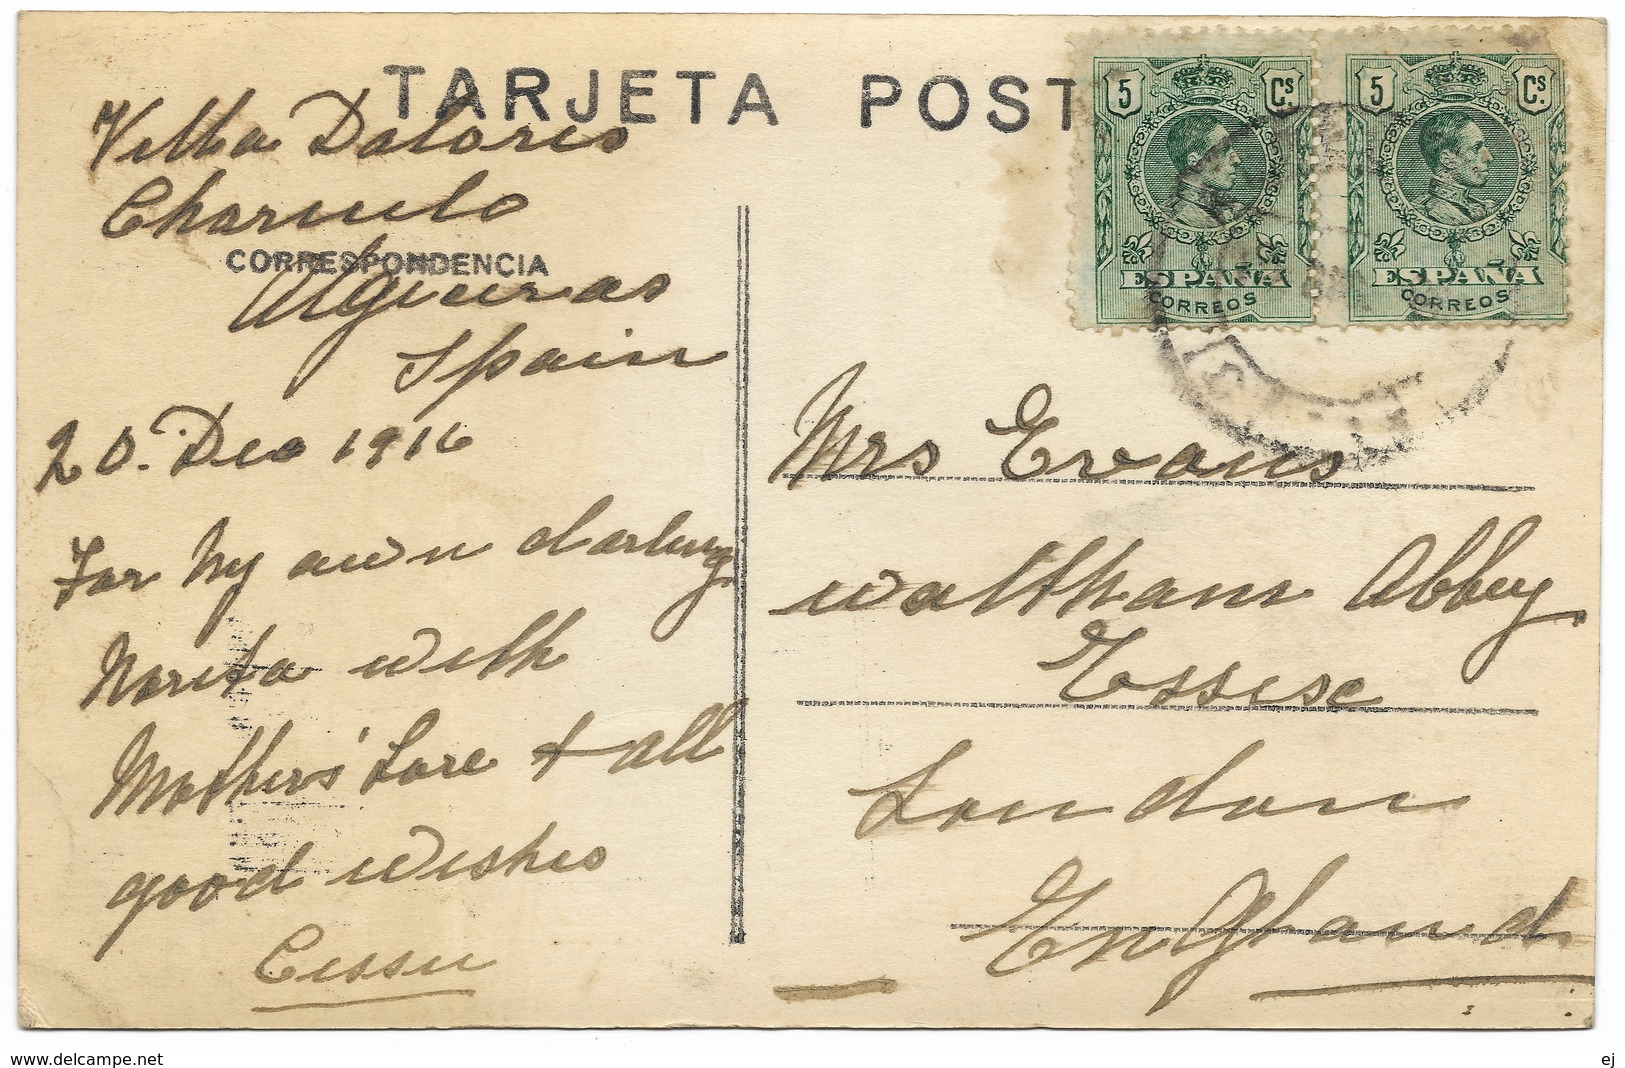 TARJETA POST
Villa Dolores
CORRESPONDENCIA
Algiciras
Spain
20. Dec 1916
For My own darling
Norita with
Mothers' Love + all
good wishes
Cissie
5 Cs.
ESPAÑA
CORREOS
5 Cs.
ESPAÑA
CORREOS
Mrs Evans
Waltham Abbey
Essise
London
England
ej